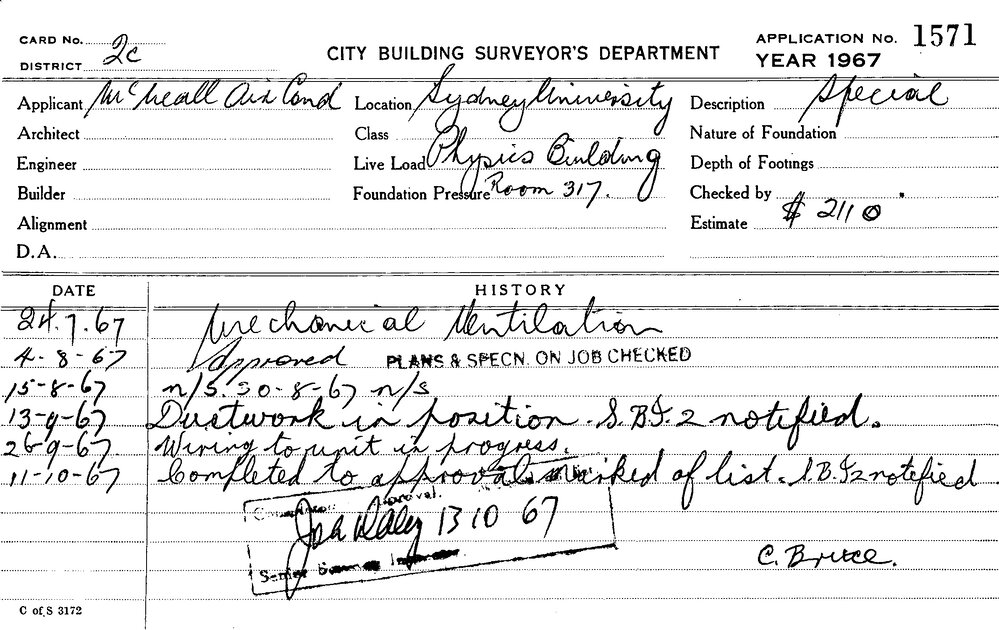 CARD No.
DISTRICT 2c
CITY BUILDING SURVEYOR'S DEPARTMENT
APPLICATION No. 1571
YEAR 1967
Applicant McNeall Air Cond
Location Sydney University
Description Special
Architect
Class
Nature of Foundation
Engineer
Live Load Physics Building
Depth of Footings
Builder
Foundation Pressure Room 317.
Checked by
Alignment
Estimate $ 2110
D.A.
DATE HISTORY
24.7.67 Mechanical Ventilation
4-8-67 Approved PLANS & SPECN. ON JOB CHECKED
15-8-67 n/s. 30-8-67 n/s
13-9-67 Ductwork in position. S.B.I. 2 notified.
26-9-67 Wiring to unit in progress.
11-10-67 Completed to approval marked of list. S.B.I 2 notified
Completion Approval.
Daley 13 10 67
Senior Inspector
C. Bruce.
C of S 3172